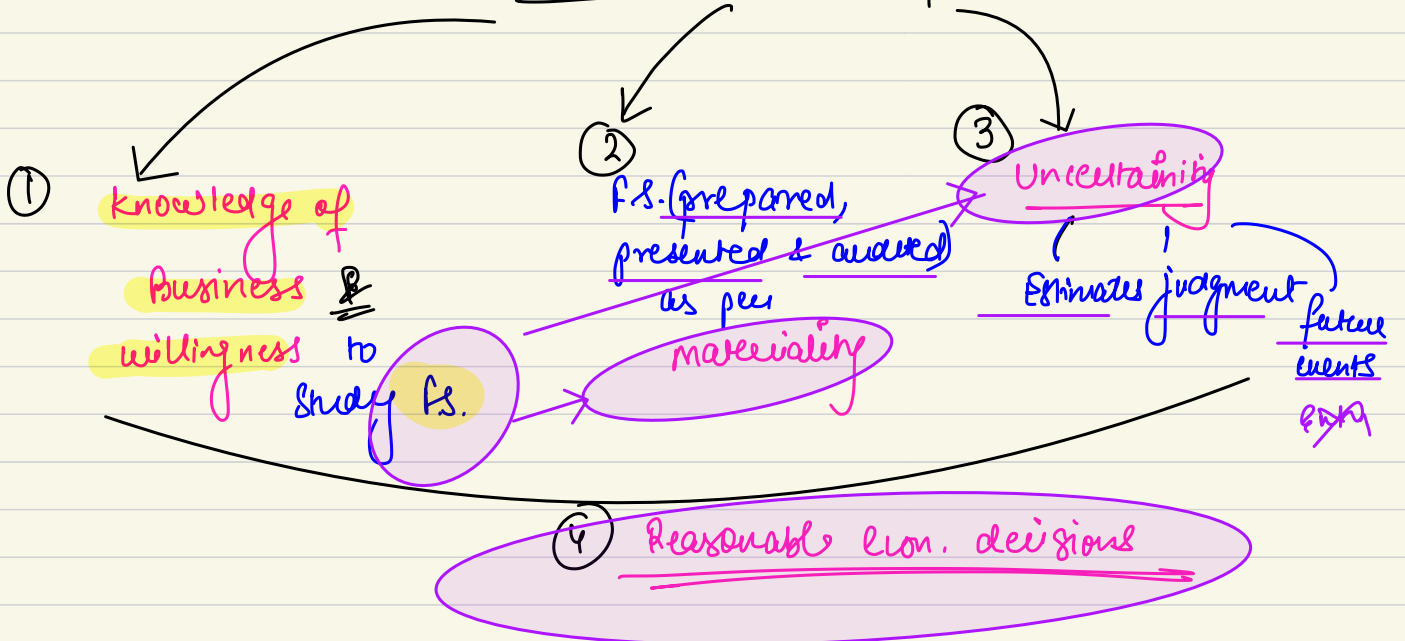 ①
Knowledge of
Business &
willingness to
Study Fs.
②
F.S. (prepared,
presented & audited)
as per
materiality
③
Uncertainity
Estimates judgment
future
events
④
Reasonable Eion. decisions